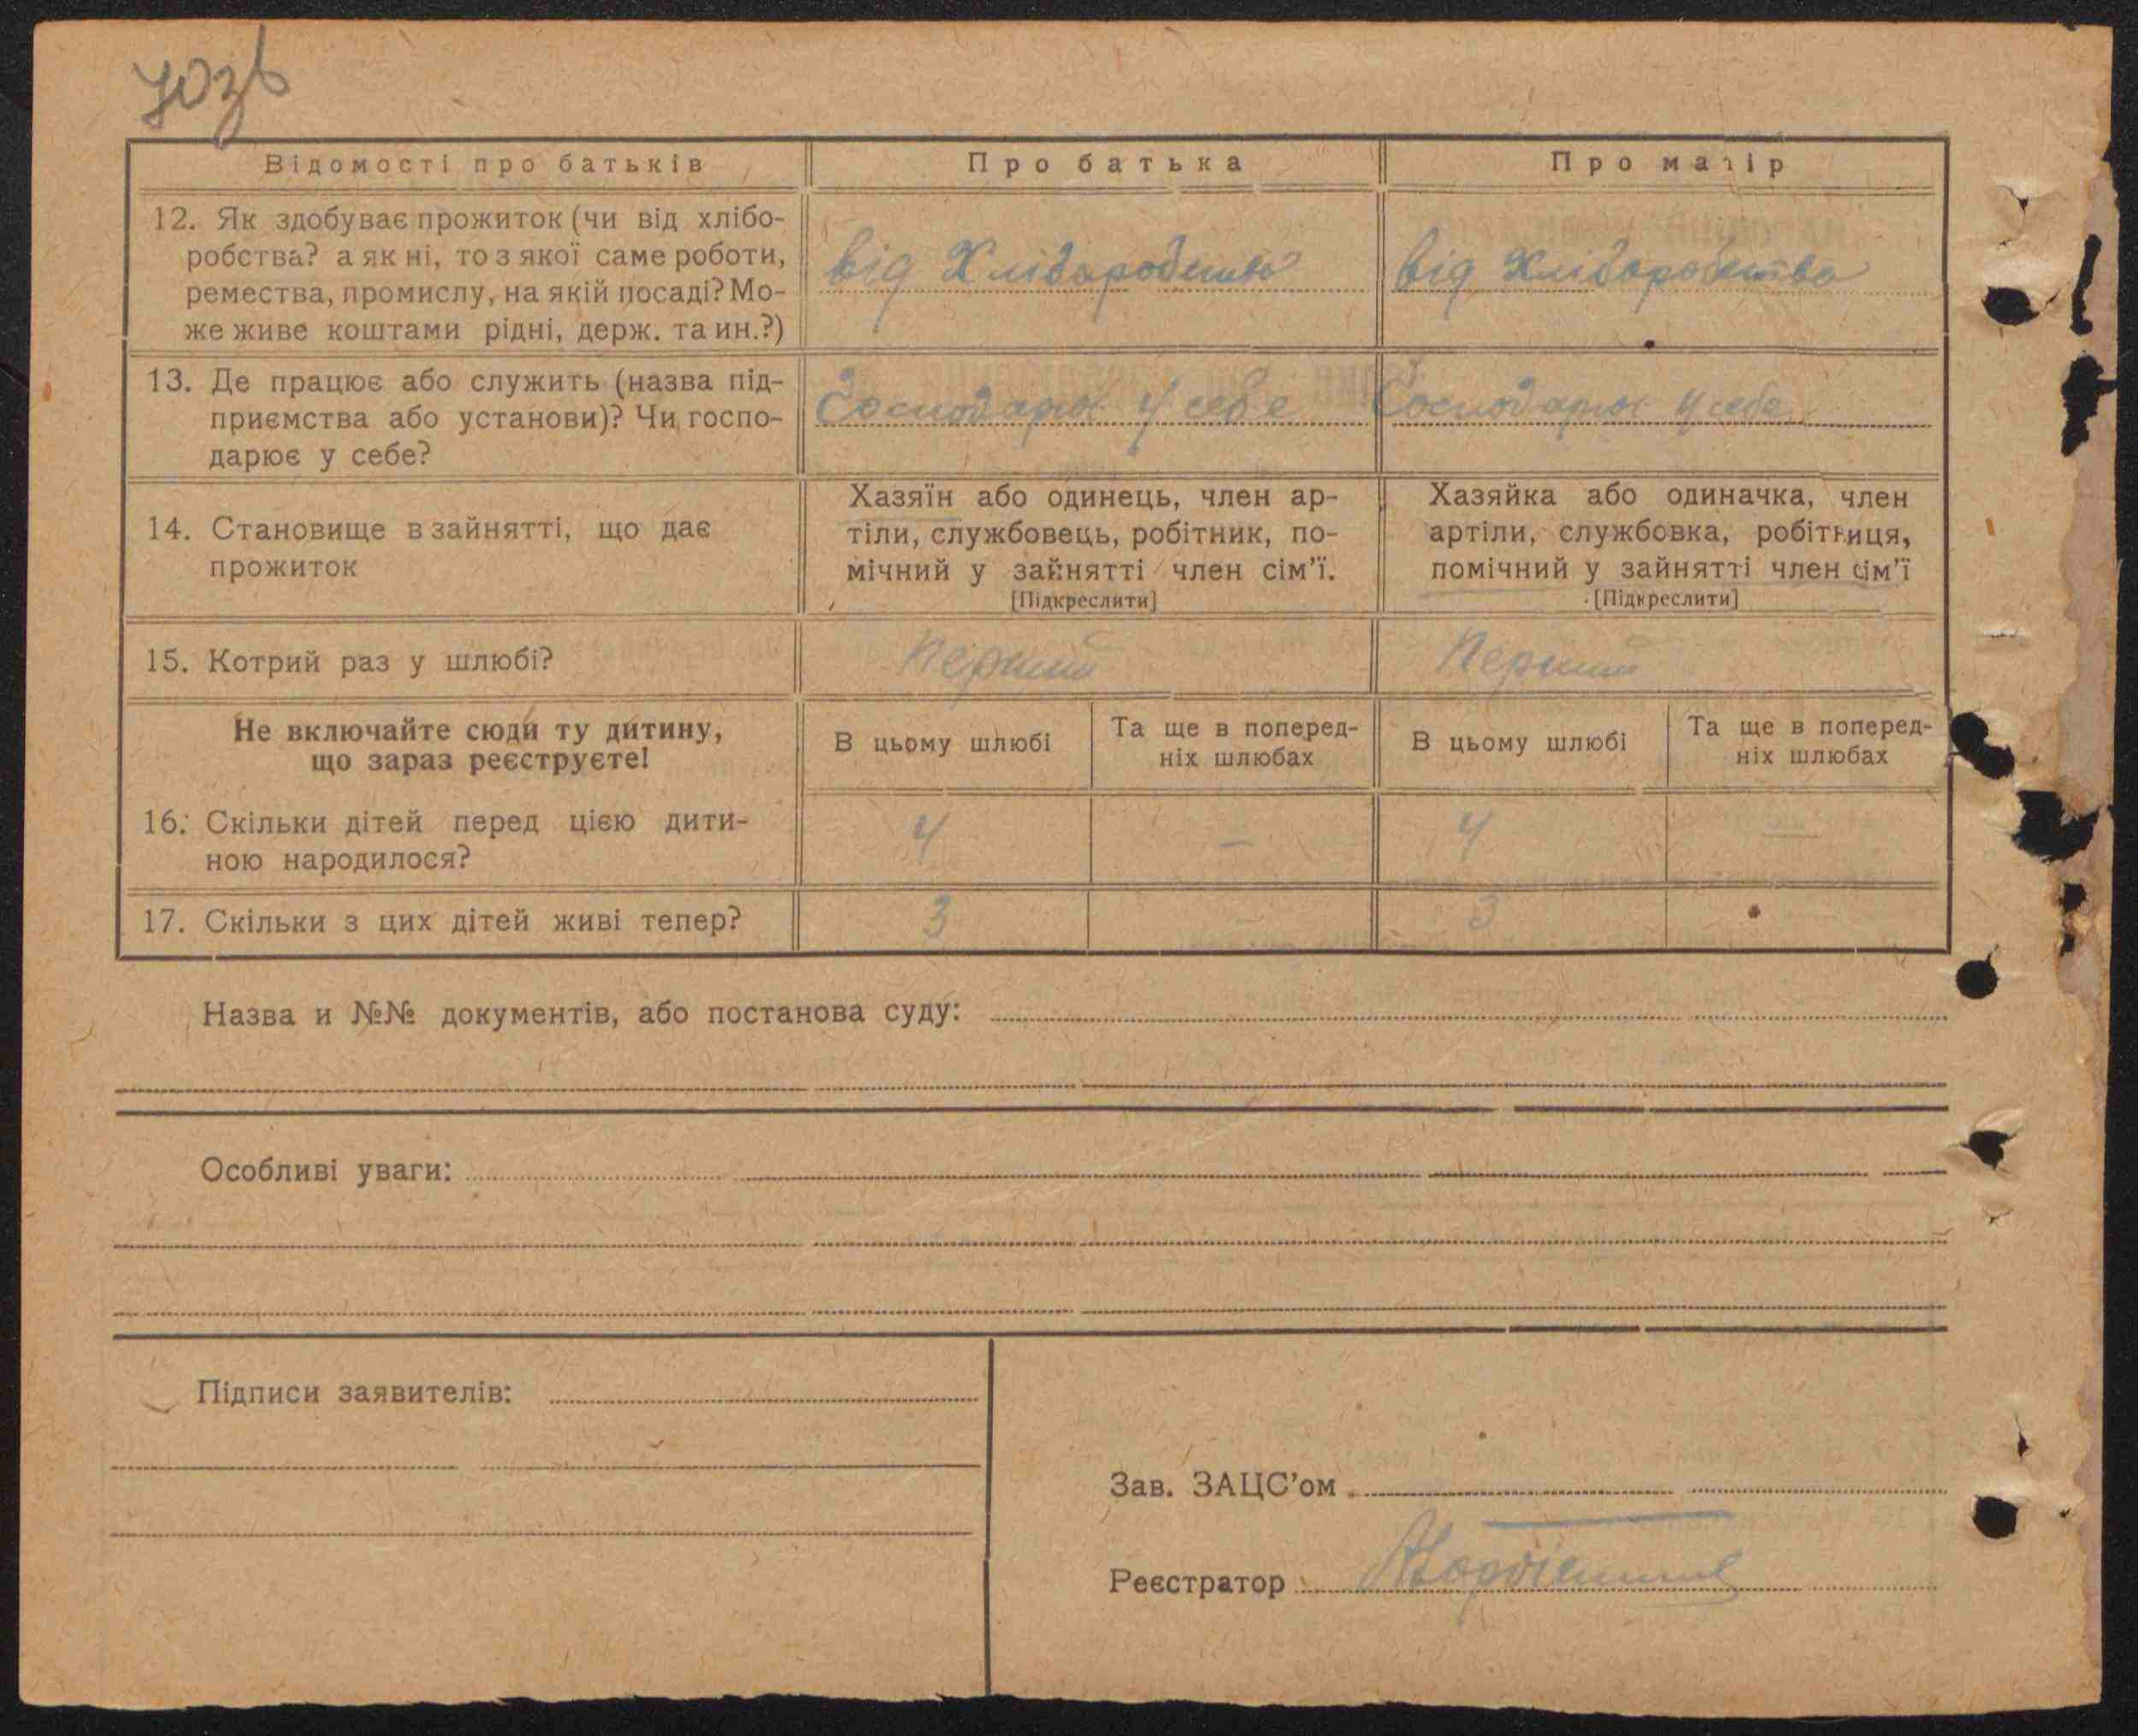 703б
Відомості про батьків
Про батька
Про матір
12. Як здобуває прожиток (чи від хлібо-
робства? а як ні, то з якої саме роботи,
ремества, промислу, на якій посаді? Мо-
же живе коштами рідні, держ. та ин.?)
від Хліборобства
від Хліборобства
13. Де працює або служить (назва під-
приємства або установи)? Чи госпо-
дарює у себе?
Господарює у себе
Господарює у себе
14. Становище в зайнятті, що дає
прожиток
Хазяїн або одинець, член ар-
тіли, службовець, робітник, по-
мічний у зайнятті член сім'ї.
[Підкреслити]
Хазяйка або одиначка, член
артіли, службовка, робітниця,
помічний у зайнятті член сім'ї
[Підкреслити]
15. Котрий раз у шлюбі?
Перший
Перший
Не включайте сюди ту дитину,
що зараз реєструєте!
В цьому шлюбі
Та ще в поперед-
ніх шлюбах
В цьому шлюбі
Та ще в поперед-
ніх шлюбах
16. Скільки дітей перед цією дити-
ною народилося?
4
—
4
—
17. Скільки з цих дітей живі тепер?
3
3
Назва и №№ документів, або постанова суду:
Особливі уваги:
Підписи заявителів:
Зав. ЗАЦС'ом
Реєстратор